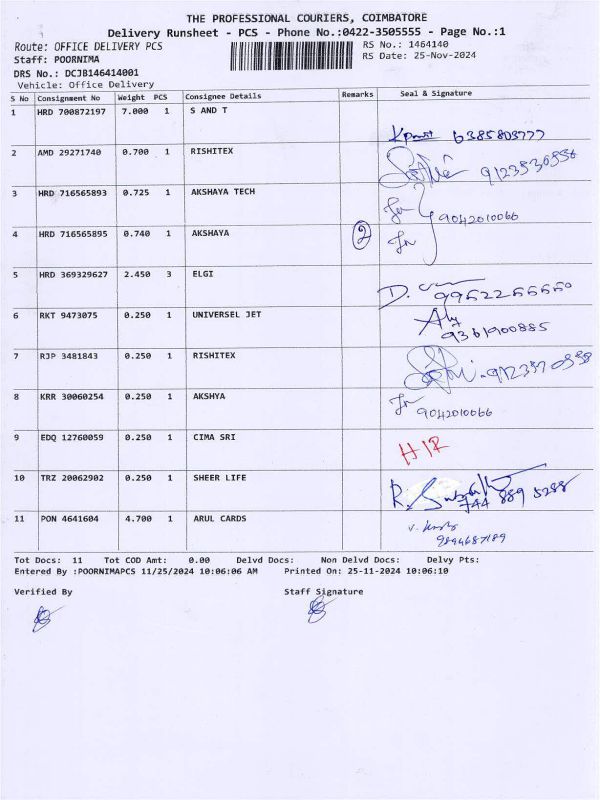 THE PROFESSIONAL COURIERS, COIMBATORE
Delivery Runsheet - PCS - Phone No.:0422-3505555 - Page No.:1
Route: OFFICE DELIVERY PCS RS No.: 1464140
Staff: POORNIMA RS Date: 25-Nov-2024
DRS No.: DCJB146414001
Vehicle: Office Delivery
S No Consignment No Weight PCS Consignee Details Remarks Seal & Signature
1 HRD 700872197 7.000 1 S AND T
6385803777
2 AMD 29271740 0.700 1 RISHITEX
3 HRD 716565893 0.725 1 AKSHAYA TECH
9042010066
4 HRD 716565895 0.740 1 AKSHAYA 2
5 HRD 369329627 2.450 3 ELGI
6 RKT 9473075 0.250 1 UNIVERSEL JET
9361900885
7 RJP 3481843 0.250 1 RISHITEX
8 KRR 30060254 0.250 1 AKSHYA
9042010066
9 EDQ 12760059 0.250 1 CIMA SRI
10 TRZ 20062902 0.250 1 SHEER LIFE
744 889 5288
11 PON 4641604 4.700 1 ARUL CARDS
9894687189
Tot Docs: 11 Tot COD Amt: 0.00 Delvd Docs: Non Delvd Docs: Delvy Pts:
Entered By :POORNIMAPCS 11/25/2024 10:06:06 AM Printed On: 25-11-2024 10:06:10
Verified By Staff Signature